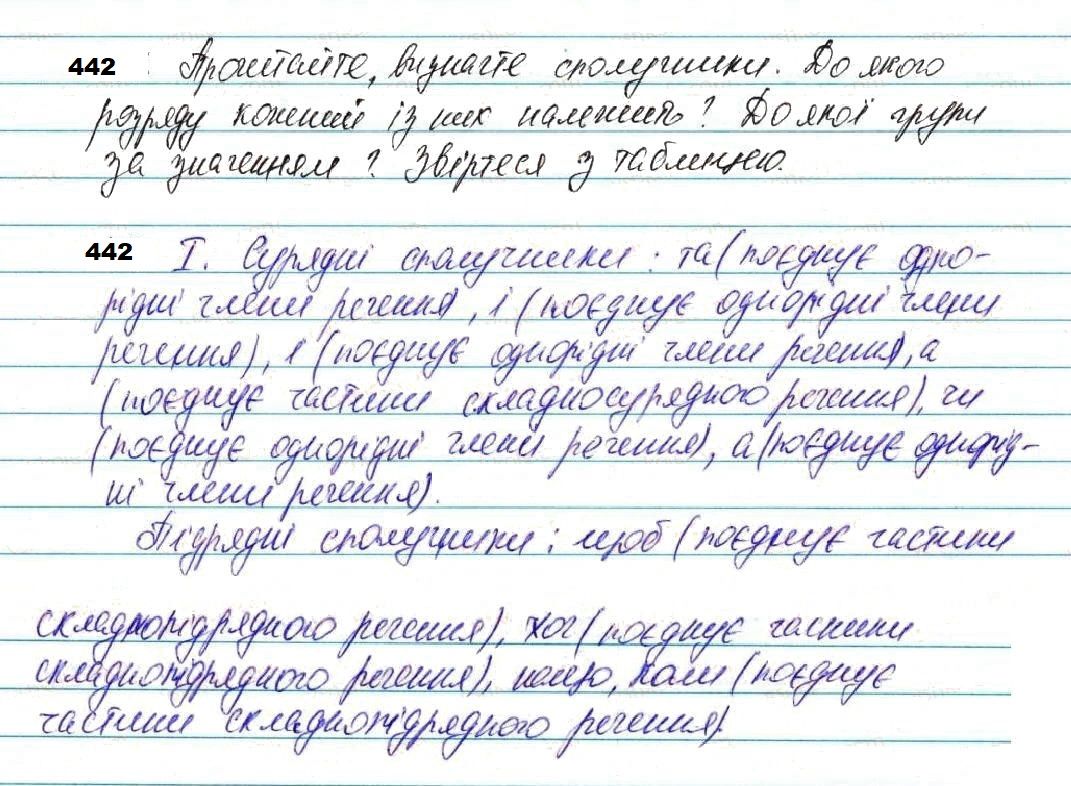 442 Прочитайте, визначте сполучники. До якого
розряду кожний із них належить? До якої групи
за значенням? Звіртеся з таблицею.
442 І. Сурядні сполучники: та (поєднує одно-
рідні члени речення, і (поєднує однорідні члени
речення), і (поєднує однорідні члени речення), а
(поєднує частини складносурядного речення), чи
(поєднує однорідні члени речення), а (поєднує однорід-
ні члени речення).
Підрядні сполучники: щоб (поєднує частини
складнопідрядного речення), хоч (поєднує частини
складнопідрядного речення), якщо, коли (поєднує
частини складнопідрядного речення).